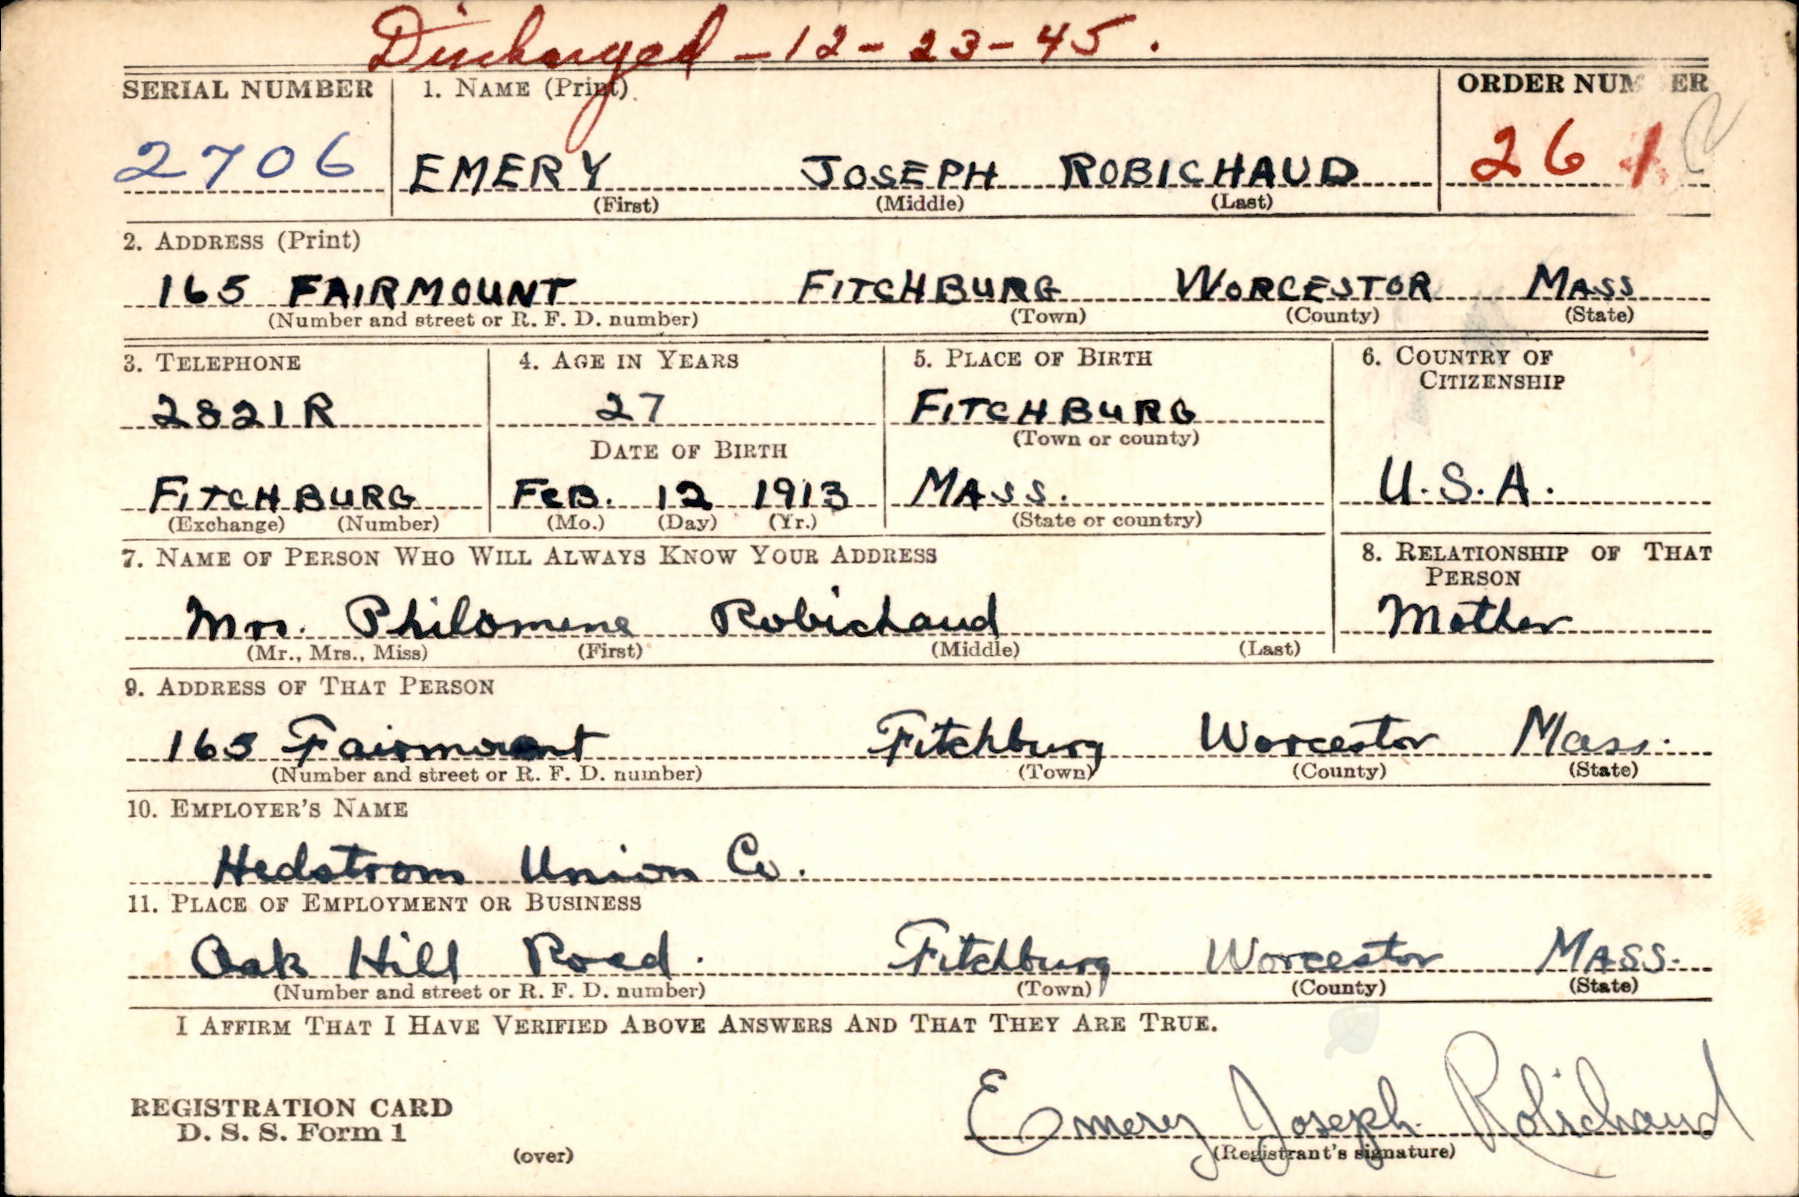 Discharged - 12 - 23 - 45 .
SERIAL NUMBER 1. NAME (Print) ORDER NUMBER
2706 EMERY JOSEPH ROBICHAUD 261
(First) (Middle) (Last)
2. ADDRESS (Print)
165 FAIRMOUNT FITCHBURG WORCESTOR MASS
(Number and street or R. F. D. number) (Town) (County) (State)
3. TELEPHONE 4. AGE IN YEARS 5. PLACE OF BIRTH 6. COUNTRY OF
CITIZENSHIP
2821R 27 FITCHBURG
DATE OF BIRTH (Town or county)
FITCHBURG FEB. 12 1913 MASS. U.S.A.
(Exchange) (Number) (Mo.) (Day) (Yr.) (State or country)
7. NAME OF PERSON WHO WILL ALWAYS KNOW YOUR ADDRESS 8. RELATIONSHIP OF THAT
PERSON
Mrs. Philomene Robichaud Mother
(Mr., Mrs., Miss) (First) (Middle) (Last)
9. ADDRESS OF THAT PERSON
165 Fairmount Fitchburg Worcestor Mass.
(Number and street or R. F. D. number) (Town) (County) (State)
10. EMPLOYER'S NAME
Hedstrom Union Co.
11. PLACE OF EMPLOYMENT OR BUSINESS
Oak Hill Road. Fitchburg Worcestor MASS.
(Number and street or R. F. D. number) (Town) (County) (State)
I AFFIRM THAT I HAVE VERIFIED ABOVE ANSWERS AND THAT THEY ARE TRUE.
REGISTRATION CARD
D. S. S. Form 1
Emery Joseph Robichaud
(over) (Registrant's signature)